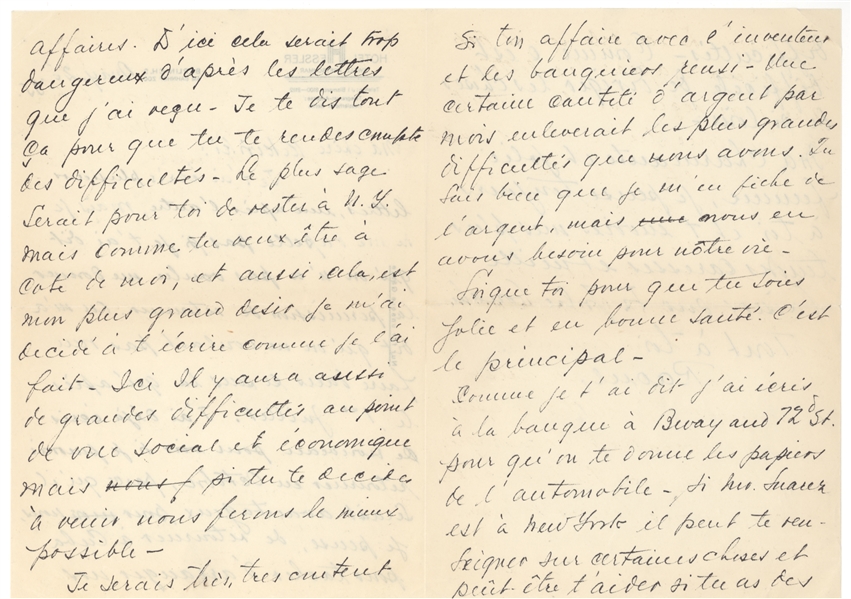 affaires. D'ici cela serait trop
dangereux d'après les lettres
que j'ai reçu - Je te dis tout
ça pour que tu te rendes compte
des difficultés - Le plus sage
serait pour toi de rester à N.Y.
mais comme tu veux être a
coté de moi, et aussi cela, est
mon plus grand desir je m'ai
decidé à t'écrire comme je l'ai
fait - Ici Il y aura aussi
de grandes difficultés au point
de vue social et économique
mais nous si tu te decides
à venir nous ferons le mieux
possible -
Je serais très, tres content
Si ton affaire avec l'inventeur
et les banquiers reusi - Une
certaine cantité d'argent par
mois enleverait les plus grandes
difficultés que nous avons. Tu
sais bien que je m'en fiche de
l'argent, mais nous en
avons besoin pour nôtre vie -
Soigne toi pour que tu sois
jolie et en bonne santé. C'est
le principal -
Comme je t'ai dit j'ai écris
à la banque à Bway and 72d St.
pour qu'on te donne les papiers
de l'automobile - Si Mr. Suarez
est à New York il peut te ren-
seigner sur certaines choses et
peût-être t'aider si tu as des